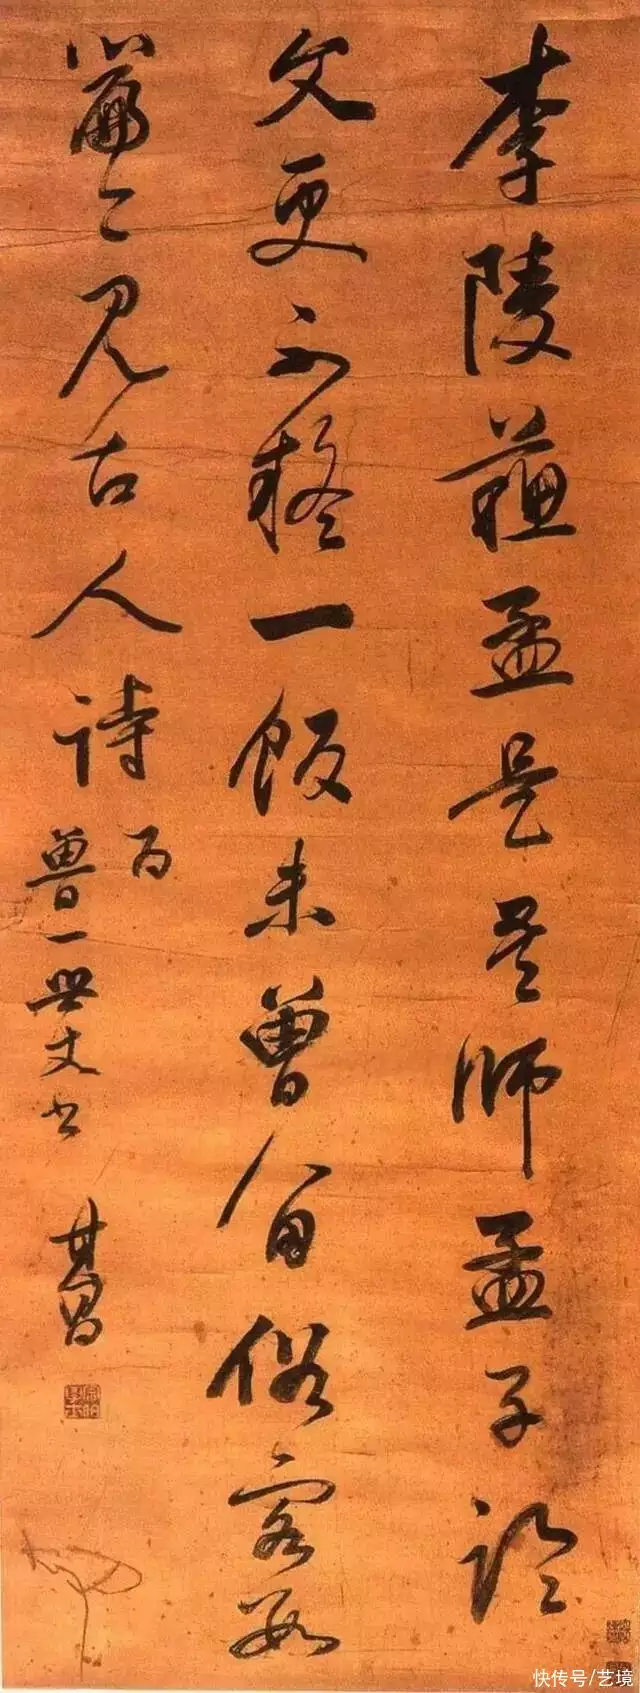 李陵蘇孟是吾師孟子論
文更不疑一飯未曾留俗客數
篇今見古人詩為
曾一世丈書 其昌
快传号/艺境